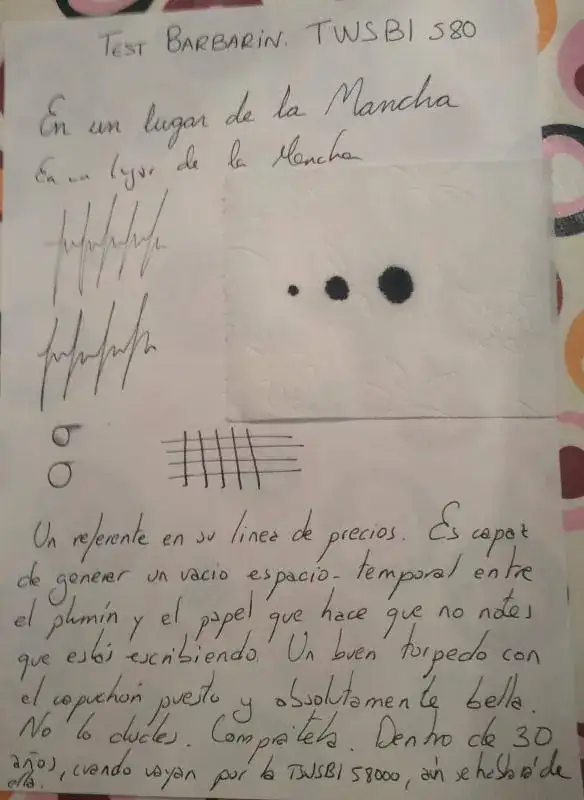 TEST BARBARIN. TWSBI 580
En un lugar de la Mancha
En un lugar de la Mancha
Un referente en su línea de precios. Es capaz
de generar un vacío espacio-temporal entre
el plumín y el papel que hace que no notes
que estás escribiendo. Un buen torpedo con
el capuchón puesto y absolutamente bella.
No lo dudes. Compratela. Dentro de 30
años, cuando vayan por la TWSBI 58000, aún se hablará de
ella.